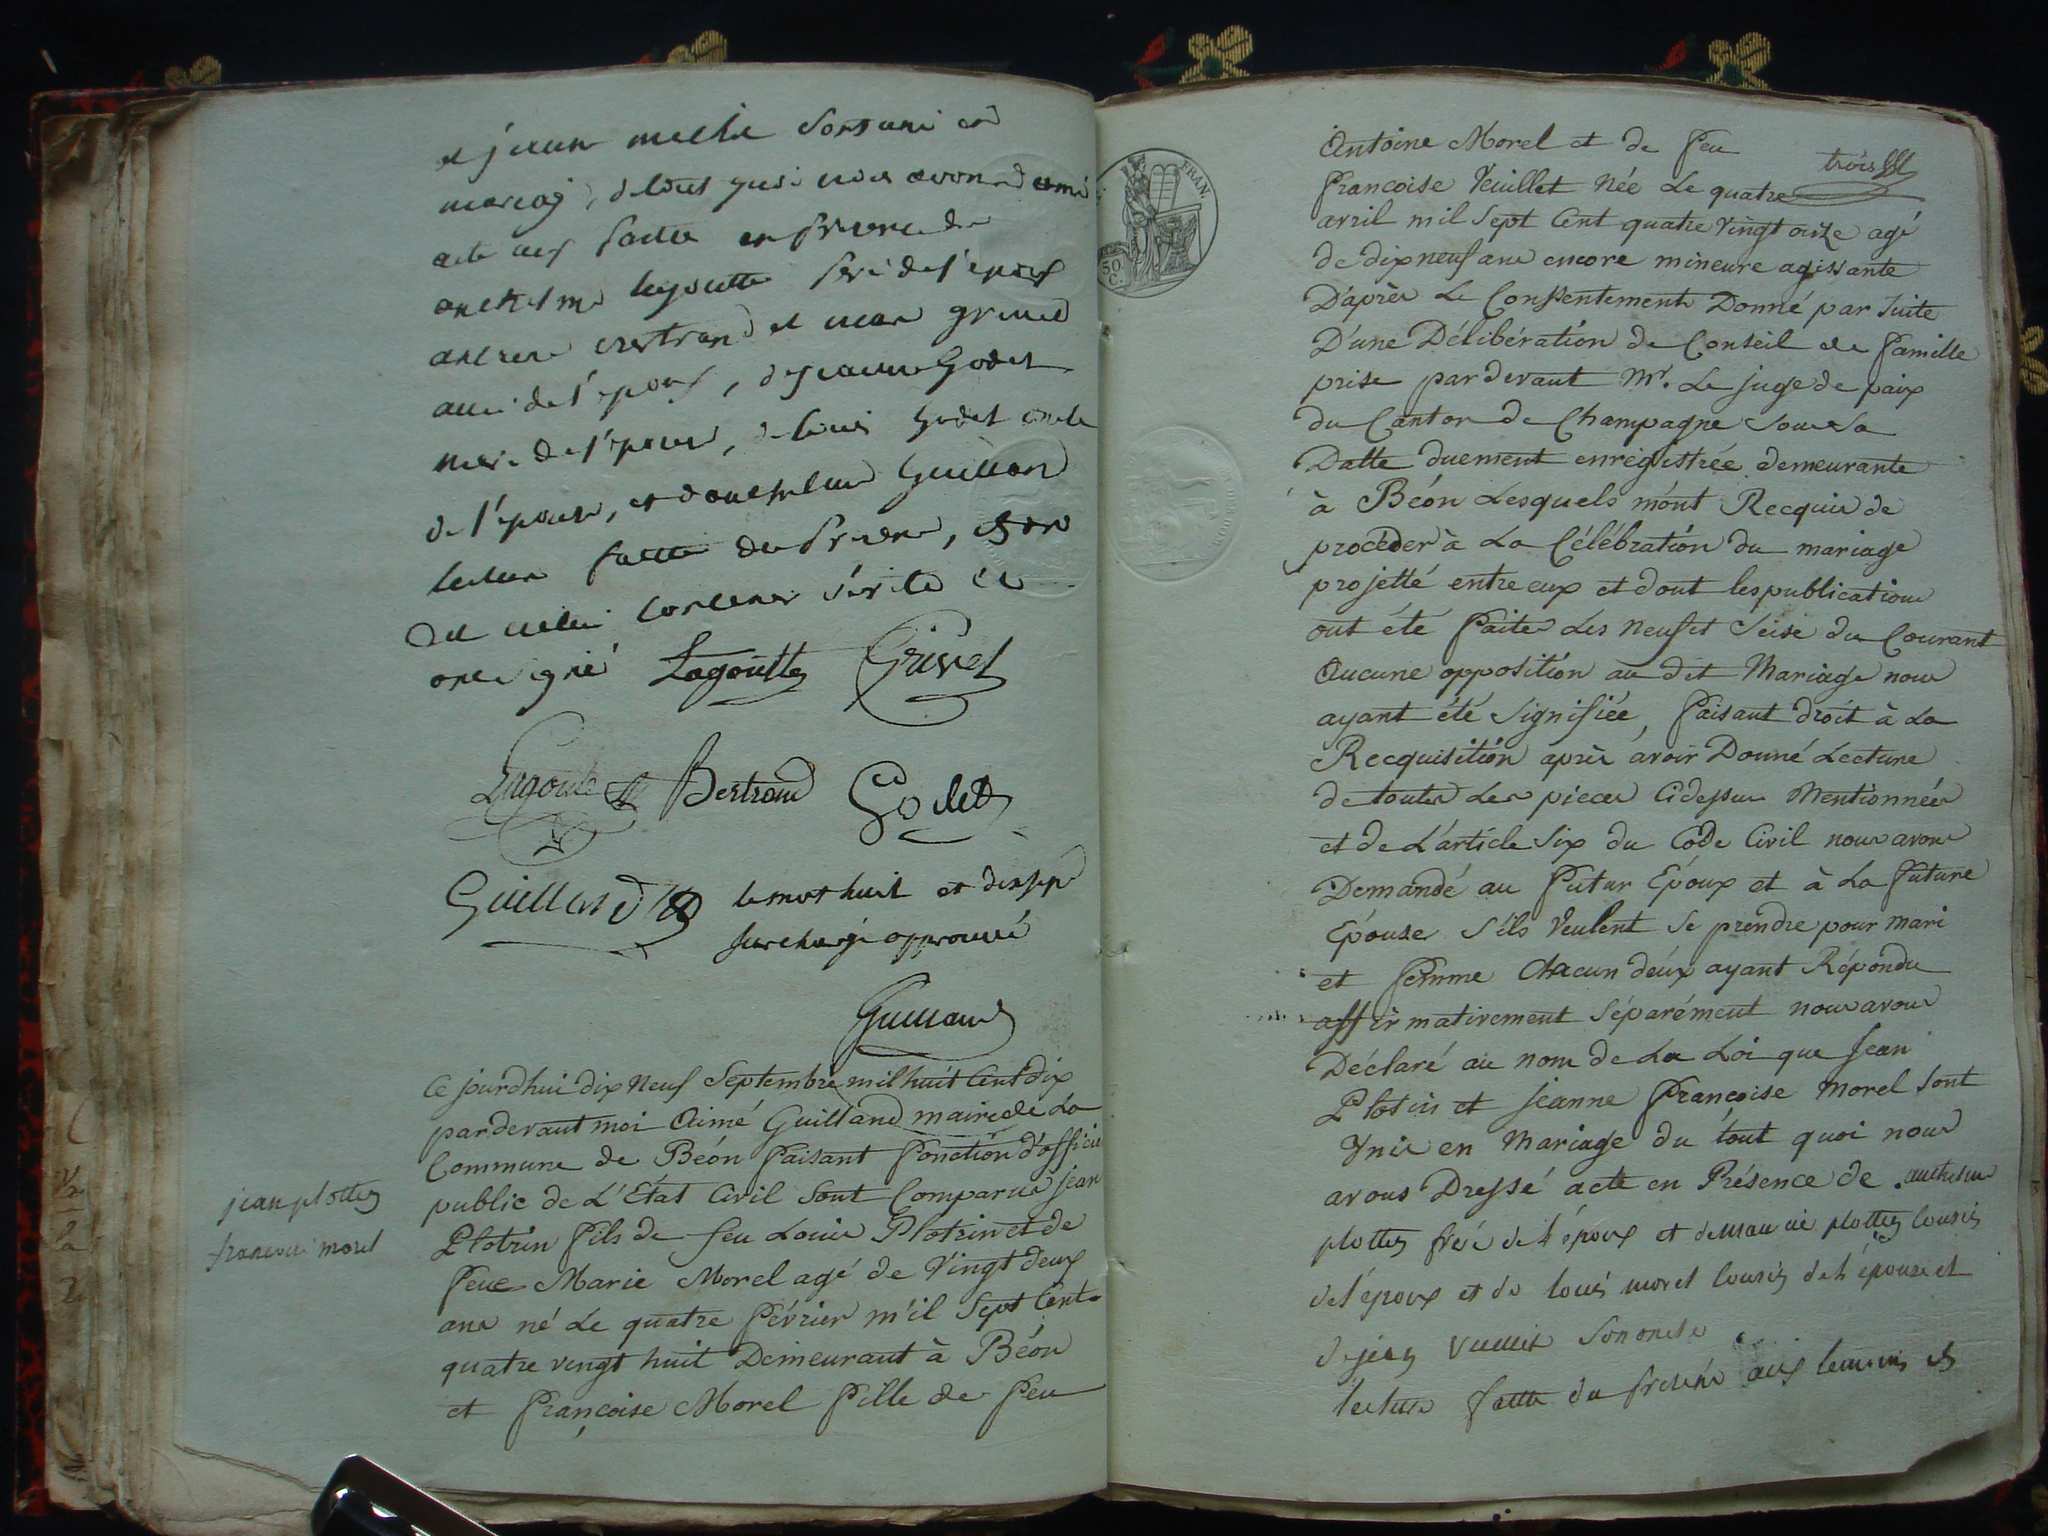 et jeanne sont unis en
mariage, de tout quoi nous avons dressé
acte aux parties en présence de
anthelme lagoutte père de l'époux
bertrand et marc grivet
ami de l'époux, de jeanne Godet
mere de l'épouse, de louis Godet oncle
de l'épouse, et d'anthelme Guilland
lecture faitte du présent, ils ont
dit icelui contenir vérité et
ont signé Lagoutte Grivet
Lagoutte Bertrand Godet
Guilland le mot huit et dix sept
surchargé approuvé
Guilland
Ce jourdhui dix Neuf Septembre mil huit Cent dix
pardevant moi Aimé Guilland maire de La
Commune de Béon Faisant Fonction d'officier
public de L'Etat Civil Sont Comparus jean
Plotrin Fils de feu Louis Plotrin et de
Feue Marie Morel agé de Vingt deux
ans né Le quatre Février mil Sept Cent
quatre vingt huit Demeurant à Béon
et Françoise Morel Fille de Feu
jean plotten
francoise morel
FRAN.
50
C.
trois
Antoine Morel et de Feu
Françoise Veuillet Née Le quatre
avril mil Sept Cent quatre Vingt onze agé
de dixneuf ans encore mineure agissante
D'après Le Consentement Donné par Suite
D'une Délibération de Conseil de Famille
prise pardevant Mr. Le juge de paix
du Canton de Champagne Sous sa
Datte duement enregistrée demeurante
à Béon Lesquels m'ont Recquis de
procèder à La Célébration du mariage
projetté entre eux et dont les publications
ont été Faites Les neuf et Seise du Courant
Aucune opposition au dit Mariage nous
ayant été Signifiée, Faisant droit à La
Recquisition après avoir Donné Lecture
de toutes Les pieces Cidessus Mentionnées
et de L'article Six du Code Civil nous avons
Demandé au Futur Epoux et à La Future
Epouse S'ils Veulent Se prendre pour mari
et Femme Chacun deux ayant Répondu
affirmativement Séparément nous avons
Déclaré au nom de La Loi que Jean
Plotin et jeanne Françoise Morel Sont
Unis en Mariage du tout quoi nous
avons Dressé acte en Présence de anthelme
plotten frère de l'époux et de plotten cousin
de l'époux et de louis morel cousin de l'épouse et
de jean Vuillet son oncle
lecture faitte du présent aux temoins et